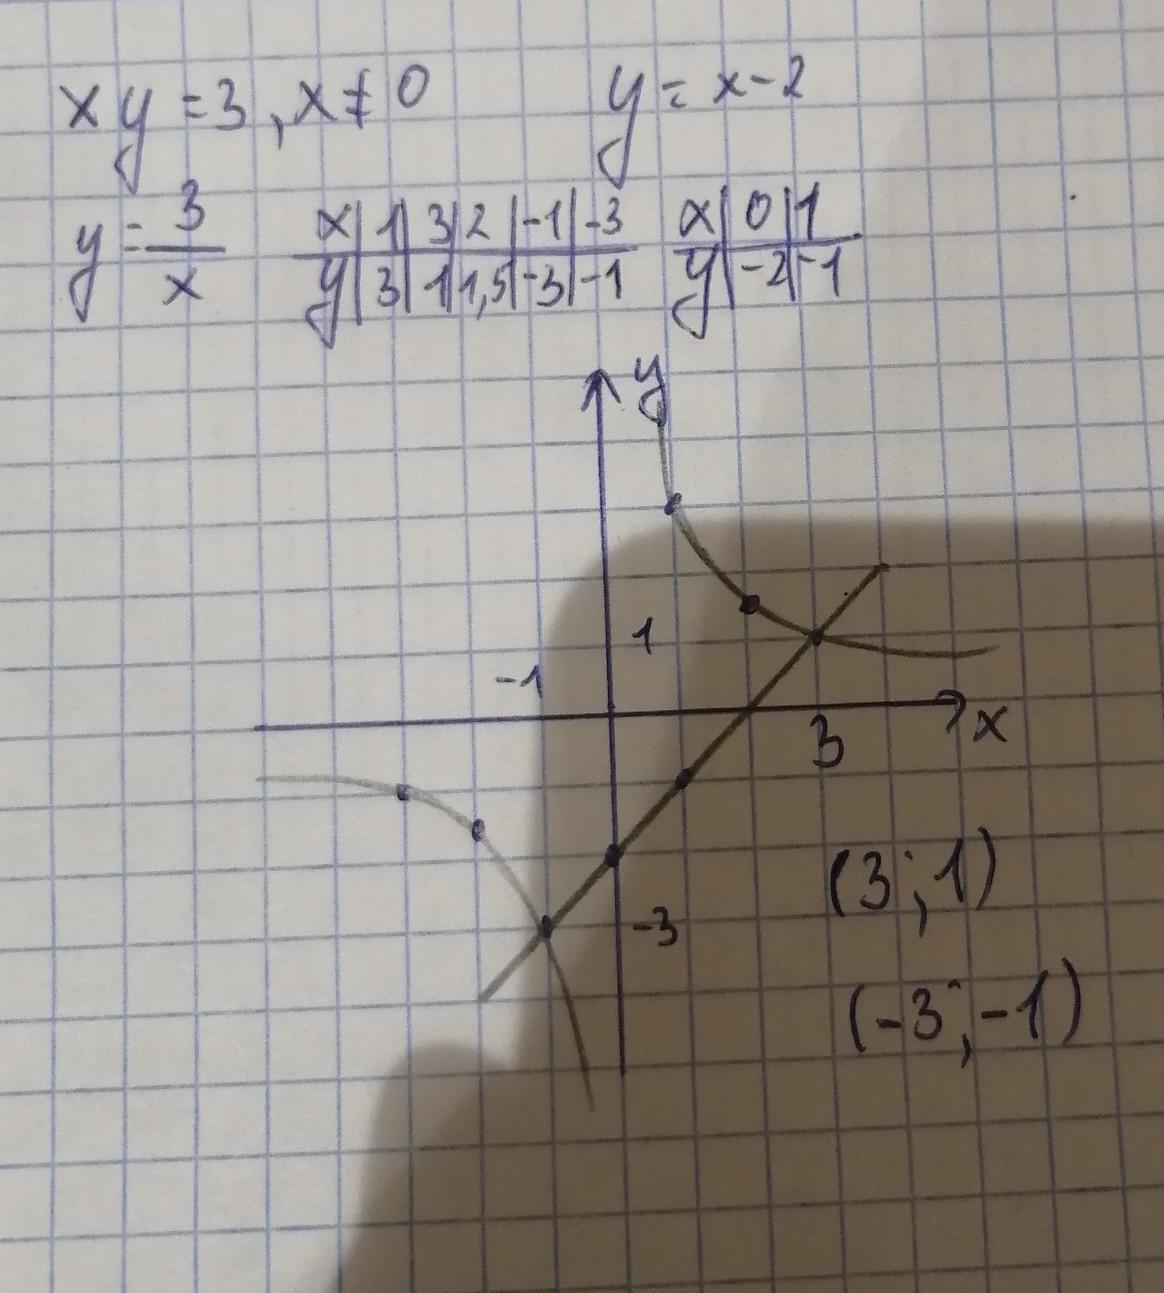 xy = 3, x ≠ 0 y = x - 2
y = 3/x x | 1 | 3 | 2 | -1 | -3 x | 0 | 1
y | 3 | 1 | 1,5 | -3 | -1 y | -2 | -1
y
1
-1
3 x
(3; 1)
-3
(-3; -1)